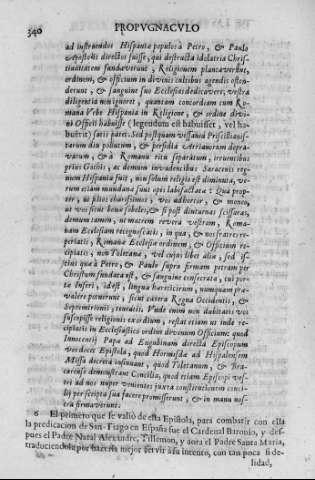 340 PROPVGNACVLO
ad instruendos Hispania populos à Petro, & Paulo
Apostolis directos fuisse, qui destructa idolatria Chris-
tianitatem fundaverunt, Religionem plantaverunt,
ordinem, & officium in divinis cultibus agendis osten-
derunt, & sanguine suo Ecclesias dedicavere; vestra
diligentia noverit, quantam concordiam cum Ro-
mana Vrbe Hispania in Religione, & ordine divi-
ni Officij habuisset (legendum est habuisset, vel ha-
buerit) satis patet. Sed postquam vesania Priscillianis-
tarum diu pollutum, & perfidia Arrianorum depra-
vatum, & à Romano ritu separatum, irruentibus
prius Gothis, ac demum invadentibus Saracenis reg-
num Hispania fuit, non solum religio est diminuta, ve-
rum etiam mundana sunt opes labefactata: Qua prop-
ter, ut filios charissimos vos adhortor, & moneo,
ut vos sicut bona soboles, & si post diuturnas scissuras,
demum tamen, ut matrem revera vestram, Roma-
nam Ecclesiam recognoscatis, in qua, & nos fratres re-
periatis, Romana Ecclesia ordinem, & Officium re-
cipiatis; non Toletana, vel cujus libet alia, sed is-
tius quæ à Petro, & Paulo supra firmam petram per
Christum fundata est, & sanguine consecrata, cui por-
ta Inferi, idest, lingua hæreticorum, numquam præ-
valere potuerunt, sicut cætera Regna Occidentis, &
Septentrionis, teneatis. Vnde enim non dubitatis vos
suscepisse religionis exordium, restat etiam ut inde re-
cipiatis in Ecclesiasticis ordine divinum Officium: quod
Innocentij Papa ad Eugubinum directa Episcopum
vos docet Epistola, quod Hormisda ad Hispalensem
Missa decreta insinuant, quod Toletanum, & Bra-
carense demonstrant Concilia, quod etiam Episcopi ves-
tri ad nos nuper venientes juxta constitutionem conci-
lij per scripta sua facere promisserunt, & in manu nos-
tra firmaverunt.
6 El primero que se valiò de esta Epistola, para combatir con ella
la predicacion de San-Tiago en España fue el Cardenal Baronio, y des-
pues el Padre Natal Alexandre, Tillemon, y aora el Padre Santa Maria,
traduciendola por hazerla mejor servir à su intento, con tan poca fi-
delidad,